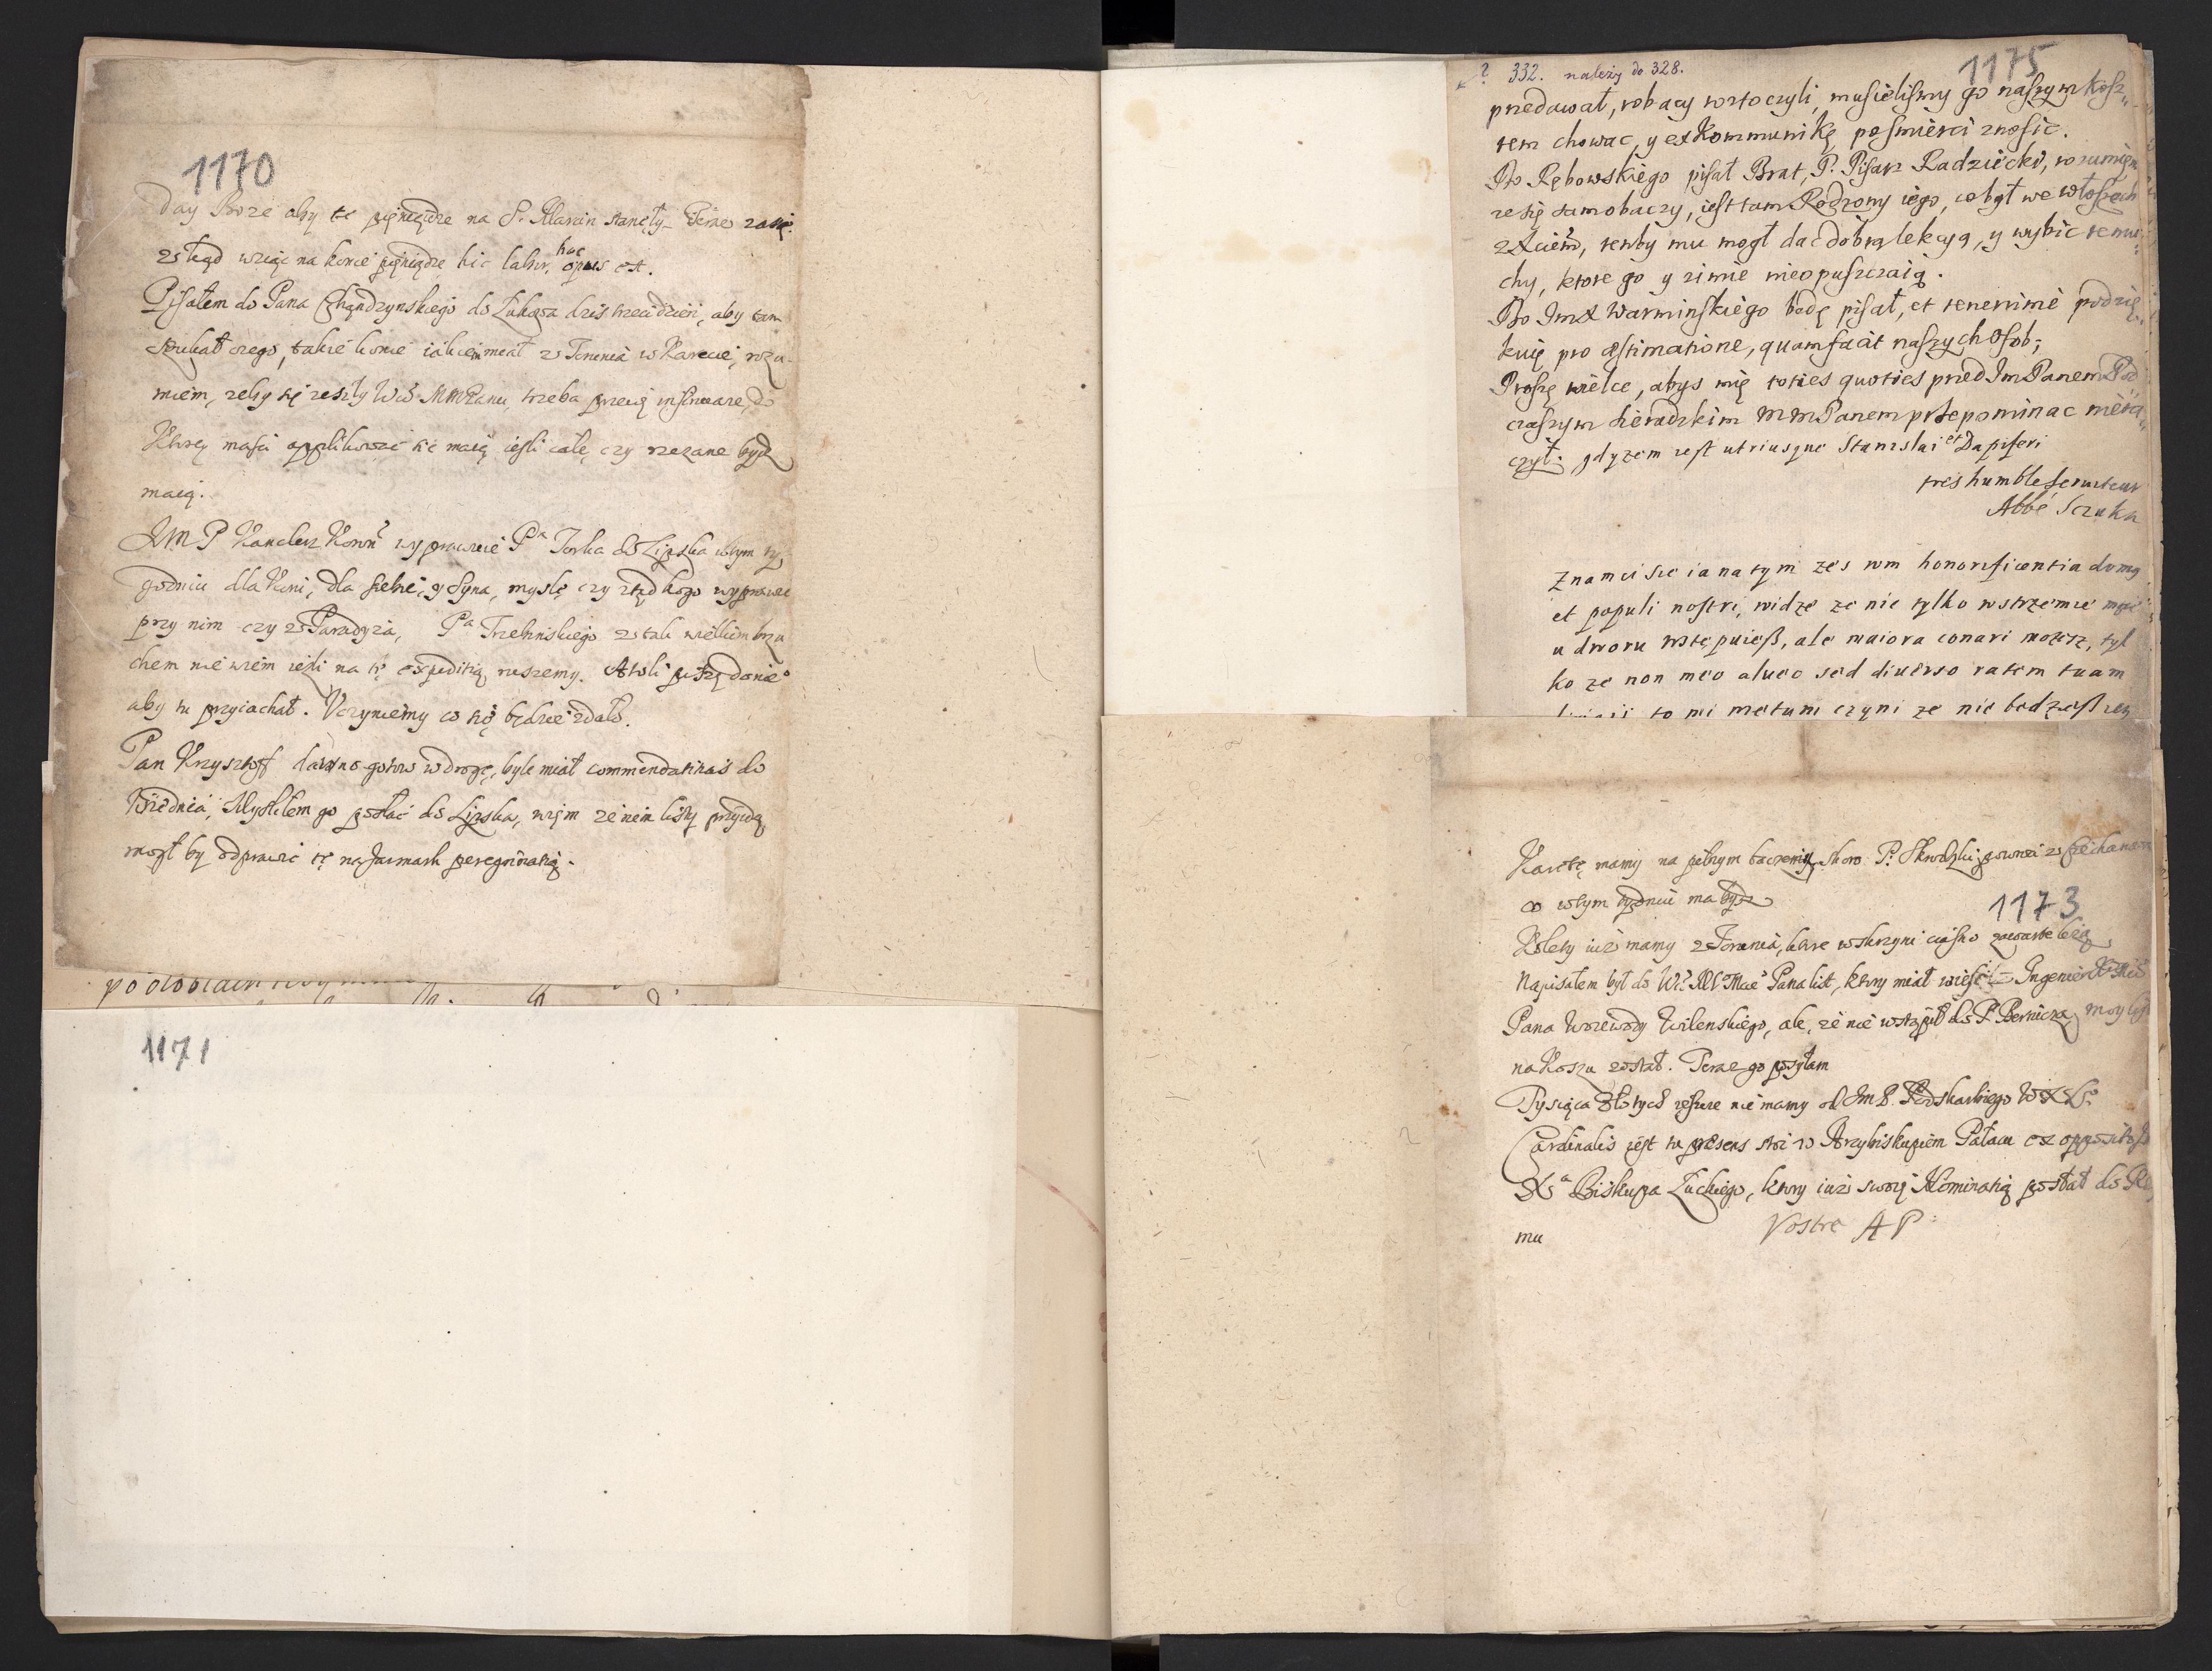 1170
Day Boże aby te pieniądze na S. Marcin stanęły. Teraz zasię
zkąd wziąć na konie pieniądze hic labor, hoc opus est.
Pisałem do Pana Chądzynskiego do Łukowa dzis trzeci dzień, aby tam
szukał czego, takie konie iakiem miał z Torunia w Karecie, rozu-
miem, zeby się zeszły Wć MMPanu, trzeba przecię insinuare, do
Ktorey masci applikować się maią iesli całe, czy rzezane bydz
maią.
JMP Kanclerz Koron wyprawuie Pa Jorka do Lipska w tym ty-
godniu dla Koni, dla siebie, y Syna, myslę czy ztąd kogo wyprawic
przy nim czy z Paradyza, Pa Trzebinskiego z tak wielkim brzu
chem nie wiem iesli na tę expeditią ruszemy.
aby tu przyiachał. Uczyniemy co się będzie zdało.
Pan Krzysztoff dawno gotow w drogę, byle miał commendatitias do
Wiednia, Myslilem go posłac do Lipska, niźm ze nim listy przyidą
mogł by odprawic tę na Jarmark peregrinatią.
po
1171
? 332. nalezy do 328.
1175
przedawał, robacy wztoczyli, musielismy go naszym kosz„
tem chowac, y exkommunikę po smierci znosic.
Do Rębowskiego pisał Brat, P. Pisarz Radziecki, rozumiem
ze się sam obaczy, iest tam Rodzony iego, co był we włoszech
z Xciem, tenby mu mogł dac dobrą lekcyą, y wybic te mu„
chy, ktore go y zimie nie opuszczaią.
Do JmX Warminskiego będę pisał, et tenerrime podzię„
kuię pro æstimatione, quam facit naszych Osob;
Proszę wielce, abys mię toties quoties przed Im Panem Pod
czaszym Sieradzkim MmPanem przepominac nie ra„
czył: gdyzem iest utriusque Stanislai et Dapiferi
tres humble serviteur
Abbé Sczuka
Znam ci się ia na tym zes wm honorificentia domus
et populi nostri, widzę ze nie tylko w strzemie moie
u dworu wstępuiesz, ale maiora conari mozesz, tyl
ko ze non meo alueo sed diuerso ratem tuam
to mi metum czyni ze nie bedziesz
Karetę mamy na pilnym baczeniu skoro P. powroci z Ciechanowa
co w tym tygodniu ma bydz
1173
Kolety iuż mamy z Torunia, ktore w skrzyni ciasno zawarte leżą
Napisałem był do Wć MMoie Pana list, ktory miał wieść Ingenier
Pana Woiewody Wilenskiego, ale, ze nie wstąpił do P. Bernicza, moy list
na Koszu został. Teraz go posyłam
Tysiąca Złotych ieszcze nie mamy od Jm P. Podskarbiego WXL.
Cardinalis iest tu præsens stoi w Arzybiskupiem Pałacu ex opposito
Xa Biskupa Łuckiego, ktory iuż swoię Nominatią posłał do Rzy
mu
Vostre A P: